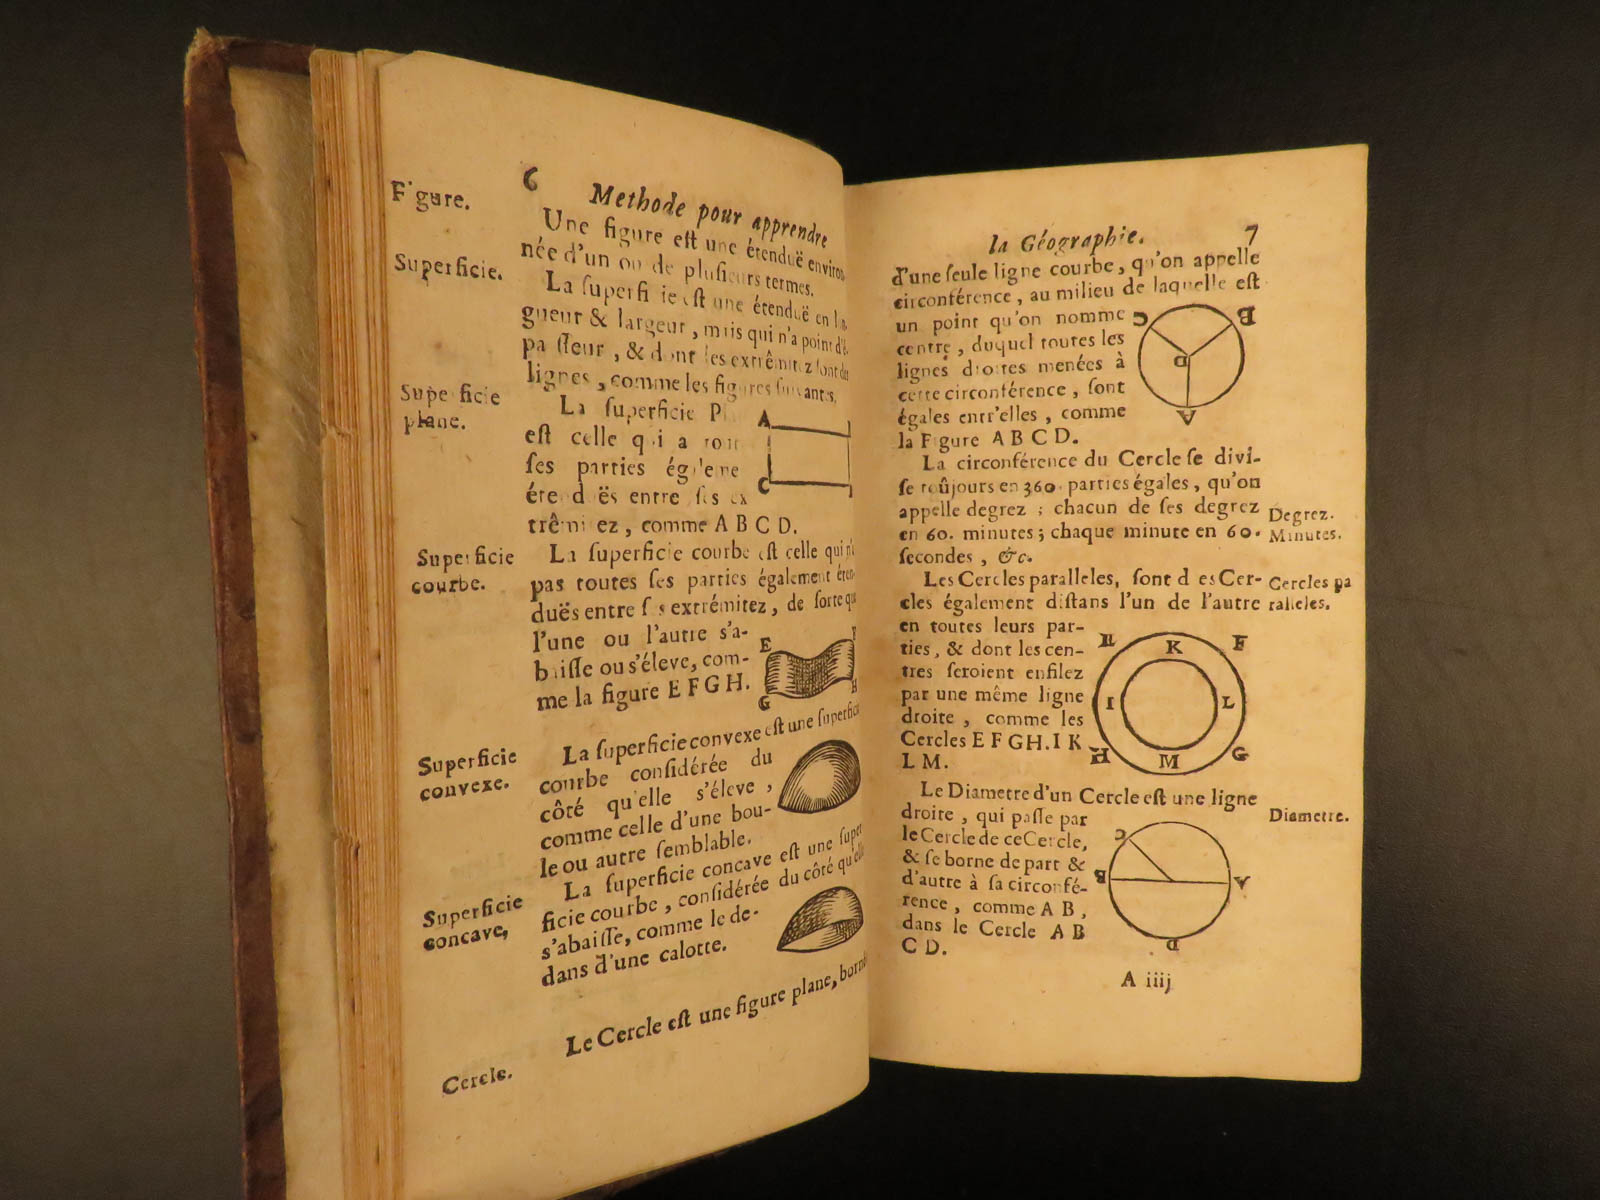 6
Methode pour apprendre
Figure.
Une figure est une étenduë environ
née d'un ou de plusieurs termes.
Superficie.
La superfi ie est une étenduë en
gueur & largeur, mais qui n'a point d'é
pa sseur, & dont les extrêmitez sont des
lignes, comme les figures suivantes.
Superficie
plane.
La superficie
est celle qui a
ses parties
entre ses ex
comme A B C D.
A
C
Superficie
courbe.
La superficie courbe est celle qui n'a
pas toutes ses parties également éten
duës entre ses extrémitez, de sorte que
l'une ou l'autre s'a-
baisse ou s'éleve, com-
me la figure E F G H.
E
F
G
H
Superficie
convexe.
La superficie convexe est une superficie
courbe considérée du
côté qu'elle s'éleve,
comme celle d'une bou-
le ou autre semblable.
Superficie
concave,
La superficie concave est une super
ficie courbe, considérée du côté qu'elle
s'abaisse, comme le de-
dans d'une calotte.
Cercle.
Le Cercle est une figure plane, borné
la Géographie. 7
d'une seule ligne courbe, qu'on appelle
circonférence, au milieu de laquelle est
un point qu'on nomme
centre, duquel toutes les
lignes droites menées à
cette circonférence, sont
égales entr'elles, comme
la Figure A B C D.
C
B
D
A
La circonférence du Cercle se divi-
se toûjours en 360. parties égales, qu'on
appelle degrez ; chacun de ses degrez
en 60. minutes ; chaque minute en 60.
secondes, &c.
Degrez.
Minutes.
Les Cercles paralleles, sont d es Cer-
cles également distans l'un de l'autre
en toutes leurs par-
ties, & dont les cen-
tres seroient enfilez
par une même ligne
droite, comme les
Cercles E F G H. I K
L M.
Cercles pa
ralleles.
E
K
F
I
L
H
M
G
Le Diametre d'un Cercle est une ligne
droite, qui passe par
le Cercle de ce Cercle,
& se borne de part &
d'autre à sa circonfé-
rence, comme A B,
dans le Cercle A B
C D.
Diametre.
C
B
A
D
A iiij